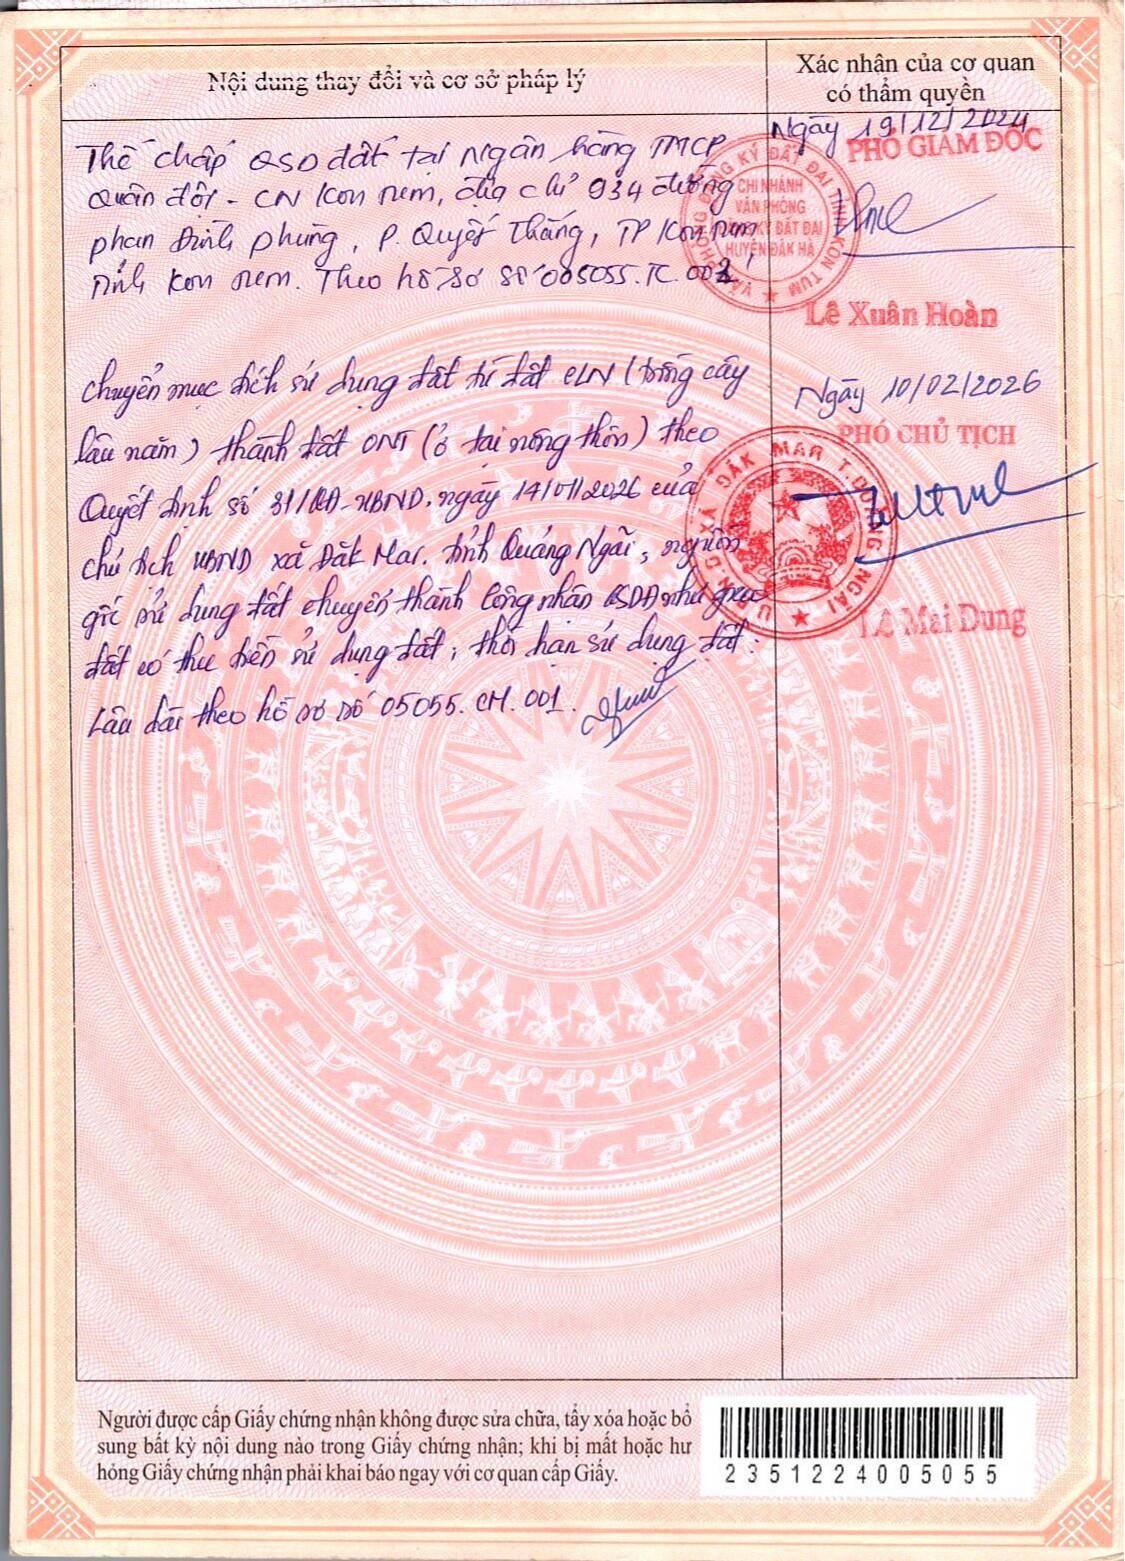 Nội dung thay đổi và cơ sở pháp lý
Xác nhận của cơ quan
có thẩm quyền
Thế chấp QSD đất tại Ngân hàng TMCP
Quân đội - CN Kon Tum, địa chỉ 934 đường
Phan Đình Phùng, P. Quyết Thắng, TP Kon Tum,
Tỉnh Kon Tum. Theo hồ sơ số 005055.TC.002
Ngày 19/12/2024
PHÓ GIÁM ĐỐC
VĂN PHÒNG ĐĂNG KÝ ĐẤT ĐAI TỈNH KON TUM
CHI NHÁNH
VĂN PHÒNG
ĐĂNG KÝ ĐẤT ĐAI
HUYỆN ĐĂK HÀ
Lê Xuân Hoàn
Chuyển mục đích sử dụng đất từ đất CLN (trồng cây
lâu năm) thành đất ONT (ở tại nông thôn) theo
Quyết định số 31/QĐ-UBND, ngày 14/01/2026 của
chủ tịch UBND xã Đăk Mar, tỉnh Quảng Ngãi; nguồn
gốc sử dụng đất chuyển thành Công nhận QSDĐ như giao
đất có thu tiền sử dụng đất; thời hạn sử dụng đất:
Lâu dài theo hồ sơ số 05055.CM.001.
Ngày 10/02/2026
PHÓ CHỦ TỊCH
U.B.N.D XÃ ĐĂK MAR T.QUẢNG NGÃI
Lê Mai Dung
Người được cấp Giấy chứng nhận không được sửa chữa, tẩy xóa hoặc bổ
sung bất kỳ nội dung nào trong Giấy chứng nhận; khi bị mất hoặc hư
hỏng Giấy chứng nhận phải khai báo ngay với cơ quan cấp Giấy.
2351224005055